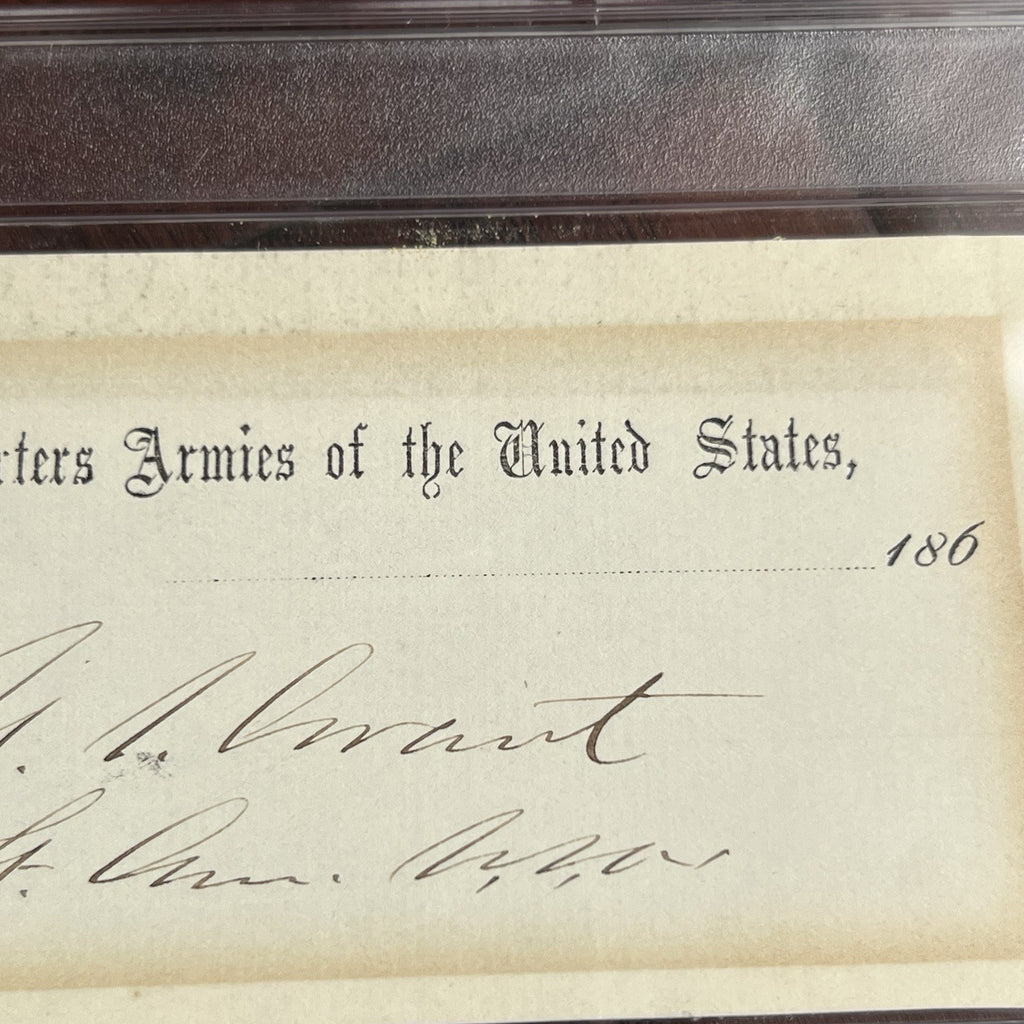 rters Armies of the United States,
186
U. S. Grant
Lt. Gen. U.S.A.